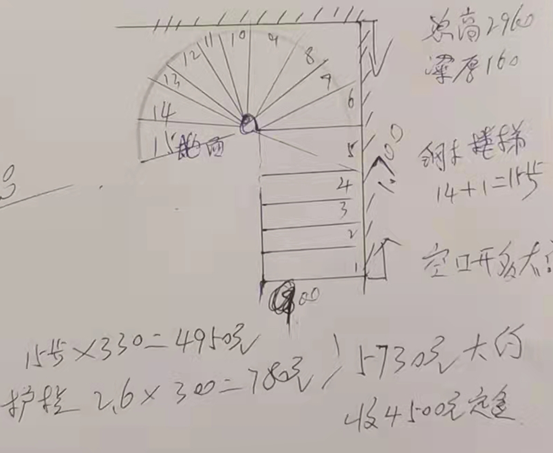 总高2960
梁厚160
钢木楼梯
14+1=15步
空口开多大?
10
9
11
12
8
13
7
6
14
15
地面
5
4
3
2
1
00
15步×330=4950元
护栏 2.6×300=780元
5730元大约
收4500元定金